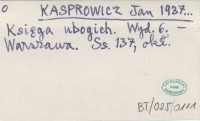 o KASPROWICZ Jan 1937...
Księga ubogich. Wyd. 6. –
Warszawa. Ss. 137, okł.
BT/025/0111